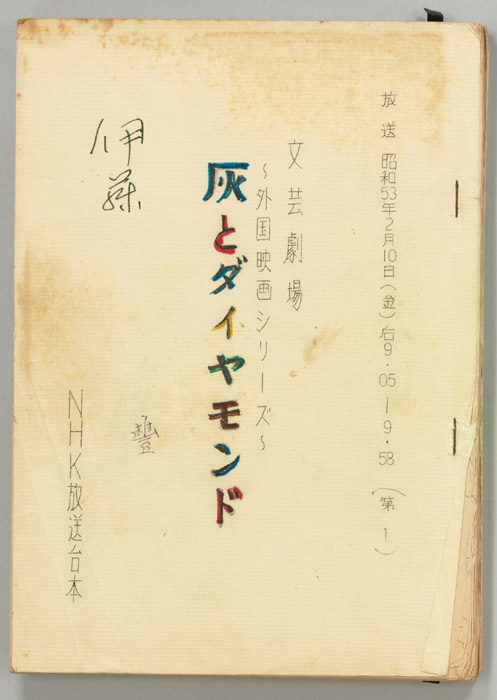 放送 昭和53年2月10日(金)后9・05ー9・58 (第1)
文芸劇場
~外国映画シリーズ~
灰とダイヤモンド
伊藤
豊
NHK放送台本